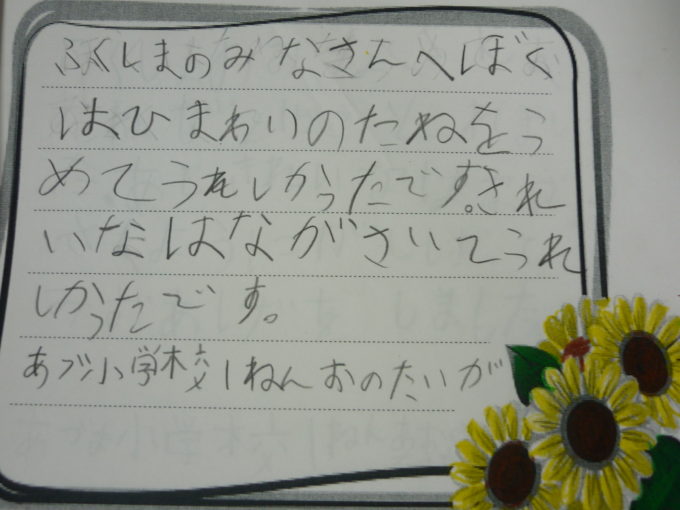 ふくしまのみなさんへぼく
はひまわりのたねをう
めてうれしかったです。きれ
いなはながさいてうれ
しかったです。
あづま小学校1ねんおのたいが